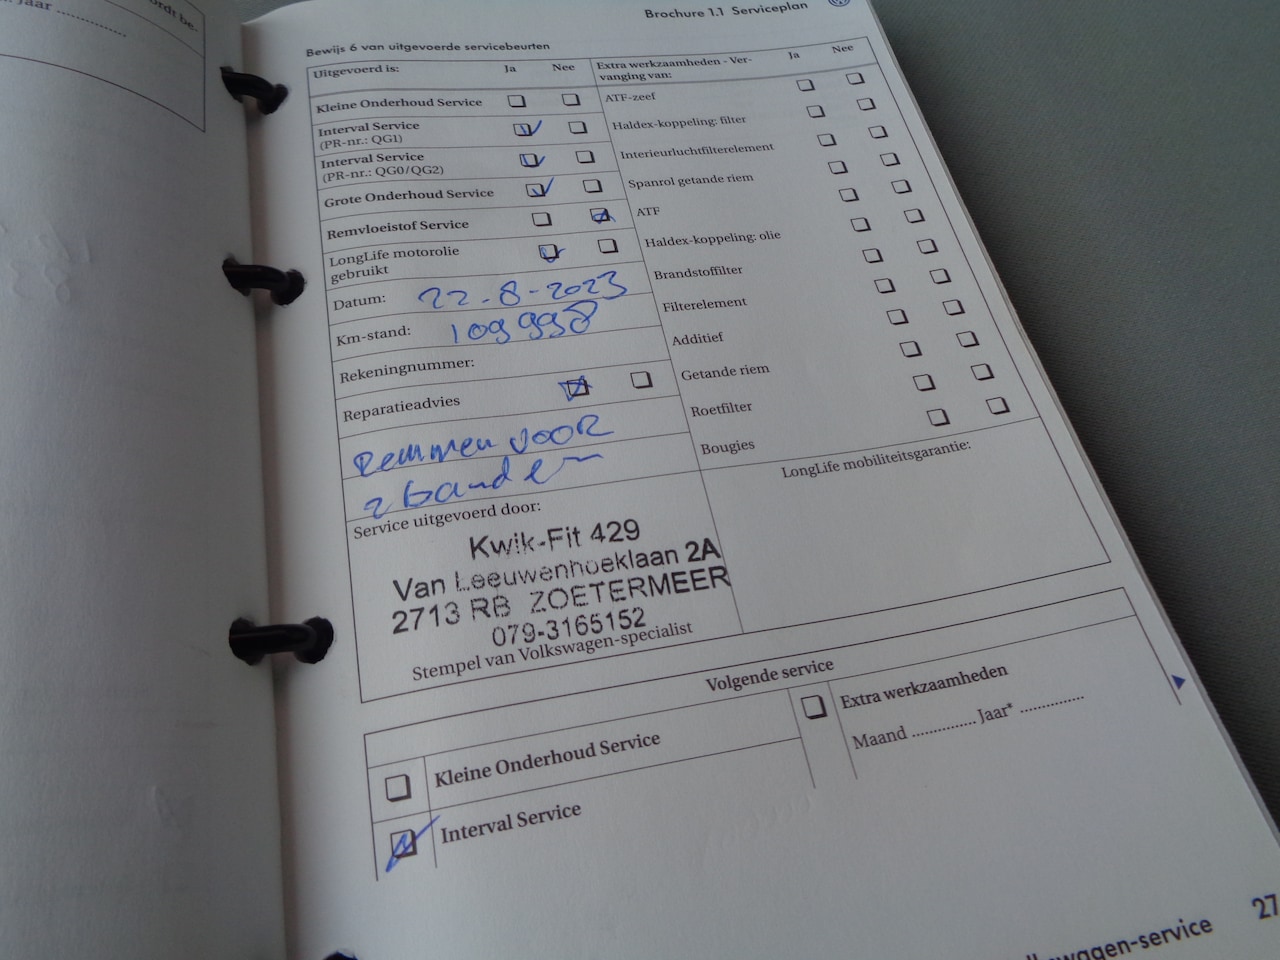 Jaar ..................
ordt be.
Brochure 1.1 Serviceplan
Bewijs 6 van uitgevoerde servicebeurten
Uitgevoerd is: Ja Nee
Kleine Onderhoud Service
Interval Service
(PR-nr.: QG1)
Interval Service
(PR-nr.: QG0/QG2)
Grote Onderhoud Service
Remvloeistof Service
LongLife motorolie
gebruikt
Datum: 22-8-2023
Km-stand: 109998
Rekeningnummer:
Reparatieadvies
Remmen voor
2 banden
Service uitgevoerd door:
Kwik-Fit 429
Van Leeuwenhoeklaan 2A
2713 RB ZOETERMEER
079-3165152
Stempel van Volkswagen-specialist
Extra werkzaamheden - Ver-
vanging van: Ja Nee
ATF-zeef
Haldex-koppeling: filter
Interieurluchtfilterelement
Spanrol getande riem
ATF
Haldex-koppeling: olie
Brandstoffilter
Filterelement
Additief
Getande riem
Roetfilter
Bougies
LongLife mobiliteitsgarantie:
Volgende service
Kleine Onderhoud Service
Interval Service
Extra werkzaamheden
Maand .............. Jaar* ..............
wagen-service
27